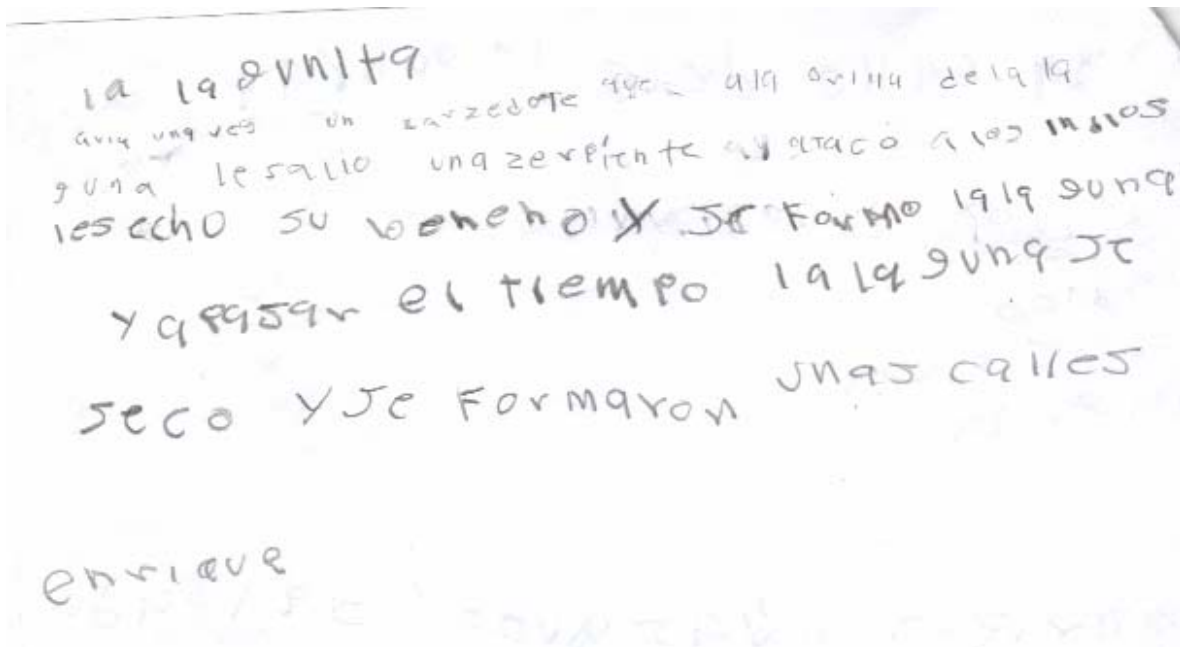 la lagunita
avia unaves un zarzedote que a la orilla de la la
guna le salio una zerpiente y ataco a los indios
les echo su beneno y se Formo la laguna
y a pasar el tiempo la laguna se
seco y se Formaron unas calles
enrique